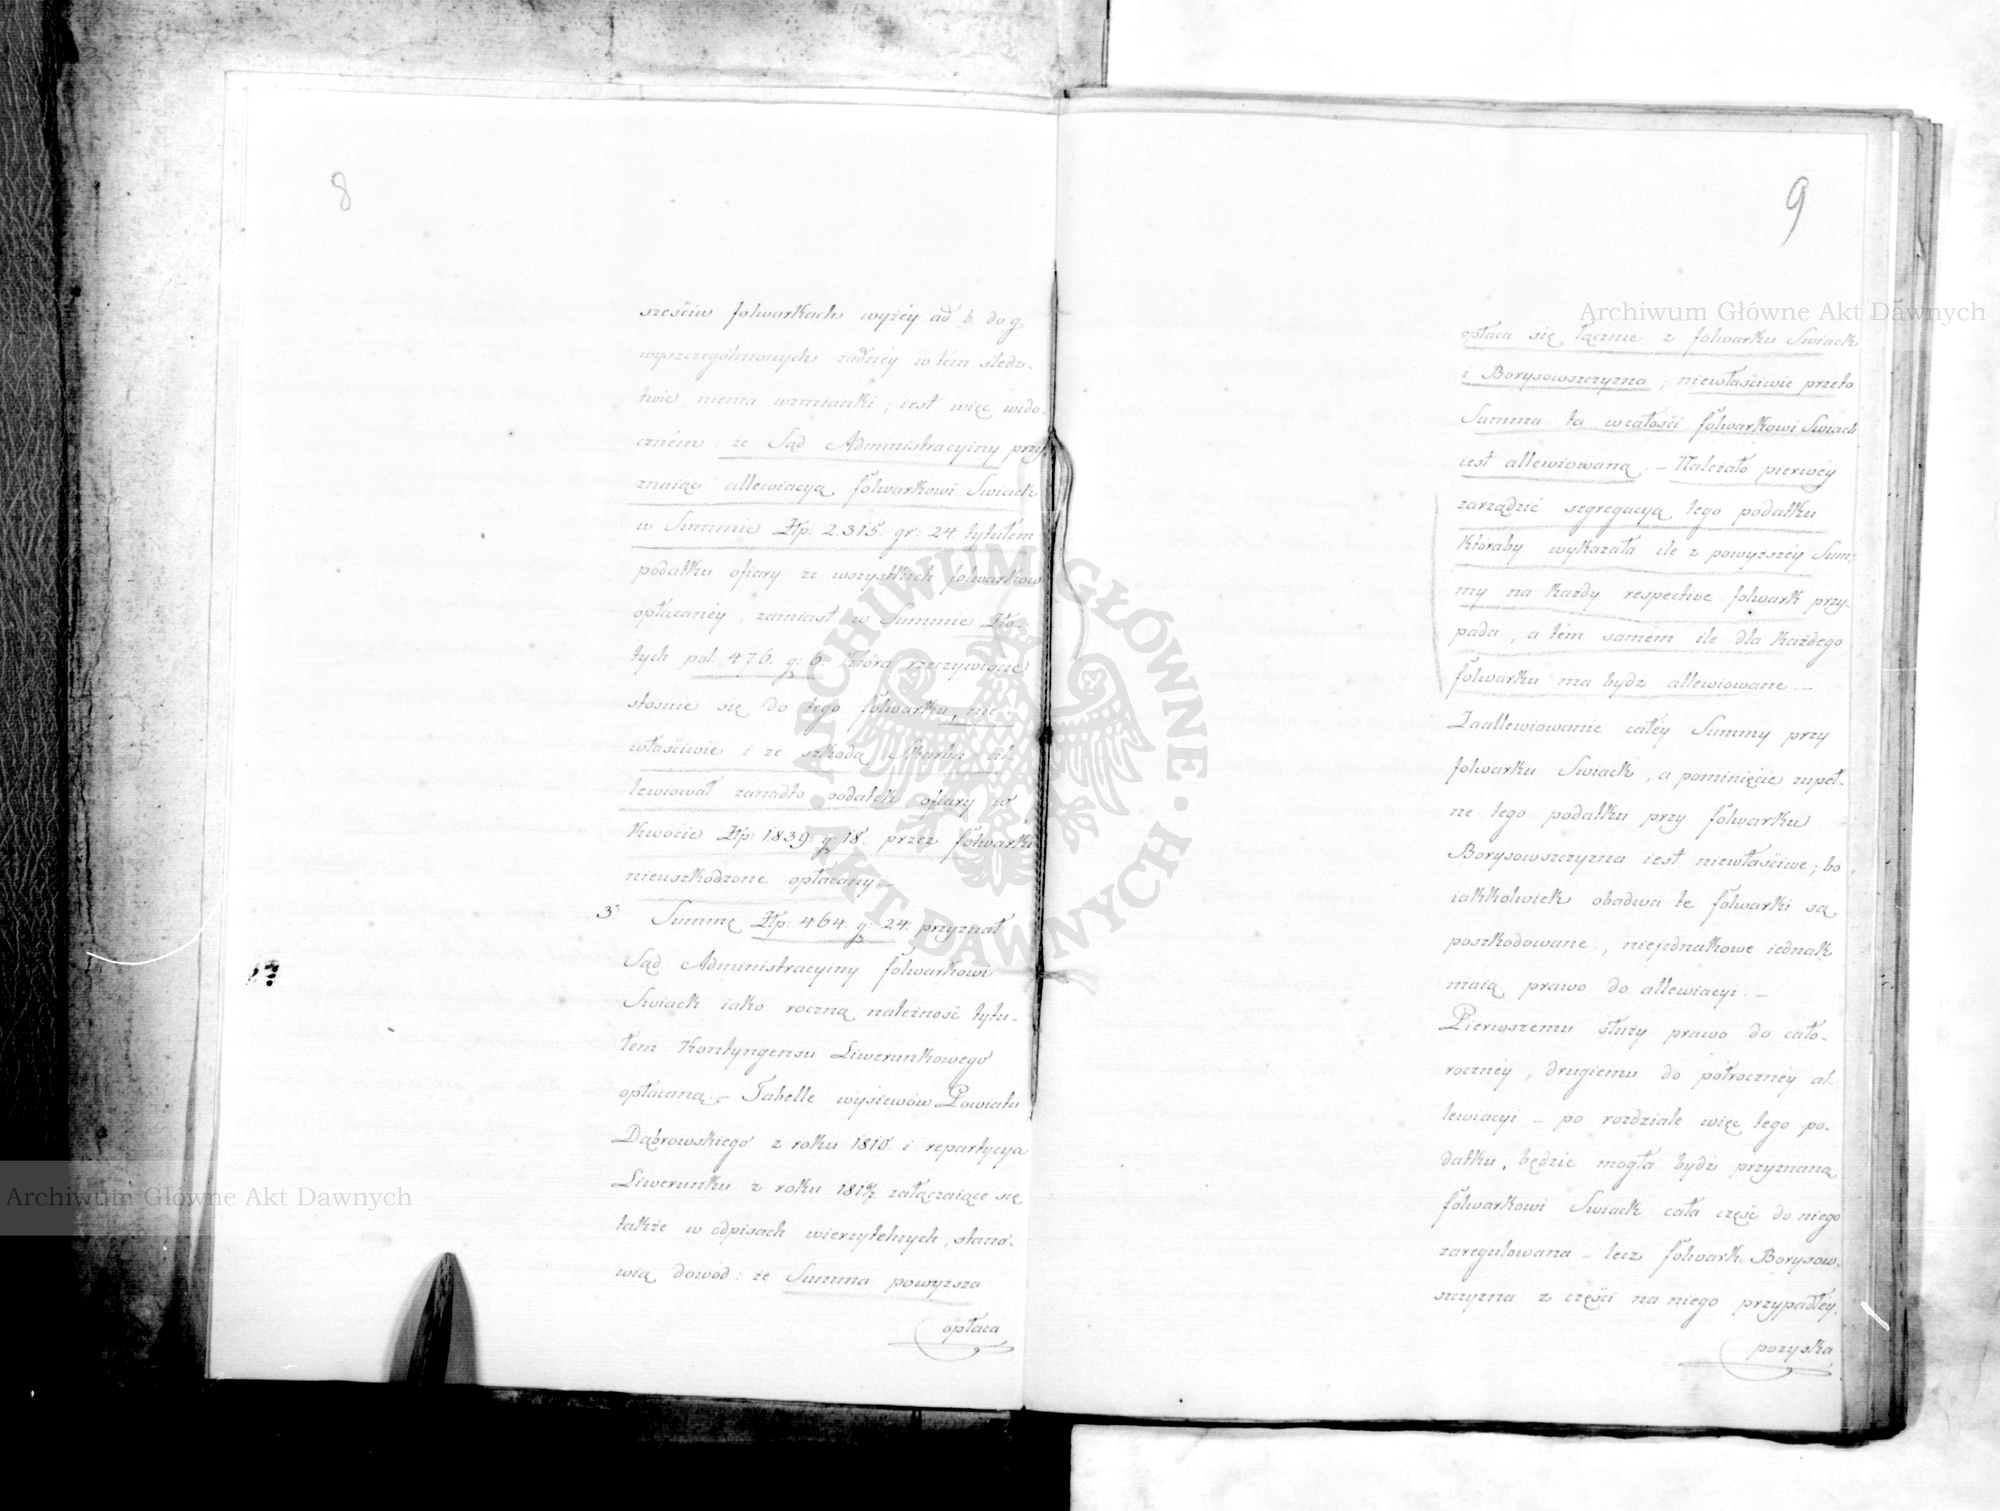 8
sześciu folwarkach wyżéy ad b. do g.
wyszczególnionych żadnéy w tém śledz-
twie niema wzmianki; iest więc wido-
czném: że Sąd Administracyiny przy-
znaiąc allewiacyą folwarkowi Swiack
w Summie Złp: 2.315. gr: 24. tytułem
podatku ofiary ze wszystkich folwarków
opłacanéy, zamiast w Summie Zło-
tych pol: 476. g: 6. która rzeczywiście
stosuie się do tego folwarku, nie-
właściwie i ze szkodą Skarbu al-
lewiował zanadto podatek ofiary w
kwocie Złp: 1839. g: 18. przez folwarki
nieuszkodzone opłacany.—
3. Summę Złp: 464. g: 24. przyznał
Sąd Administracyiny folwarkowi
Swiack iako roczną należność tytu-
łem Kontyngensu Liwerunkowego
opłacaną.— Tabelle wysiewów Powiatu
Dąbrowskiego z roku 1810. i repartycya
Liwerunku z roku załączaiące się
także w odpisach wierzytelnych, stano-
wią dowód: że Summa powyższa
opłaca
9
opłaca się łącznie z folwarku Swiack
i Borysowszczyzna; niewłaściwie przeto
Summa ta wcałości folwarkowi Swiack
iest allewiowaną.— Należało pierwéy
zarządzić segregacyą tego podatku
któraby wykazała ile z powyższéy Sum-
my na każdy respective folwark przy-
pada, a tém samém ile dla każdego
folwarku ma bydź allewiowane.—
Zaallewiowanie całéy Summy przy
folwarku Swiack, a pominięcie zupeł-
ne tego podatku przy folwarku
Borysowszczyzna iest niewłaściwe; bo
iakkolwiek obadwa te folwarki są
poszkodowane, niejednakowe iednak
maią prawo do allewiacyi.—
Pierwszemu służy prawo do cało-
rocznéy, drugiemu do półrocznéy al-
lewiacyi — po rozdziale więc tego po-
datku, będzie mogła bydź przyznaną
folwarkowi Swiack cała część do niego
zaregulowana — lecz folwark Borysow-
szczyzna z części na niego przypadłéy,
pozyska
Archiwum Główne Akt Dawnych
Archiwum Główne Akt Dawnych
ARCHIWUM GŁÓWNE
AKT DAWNYCH